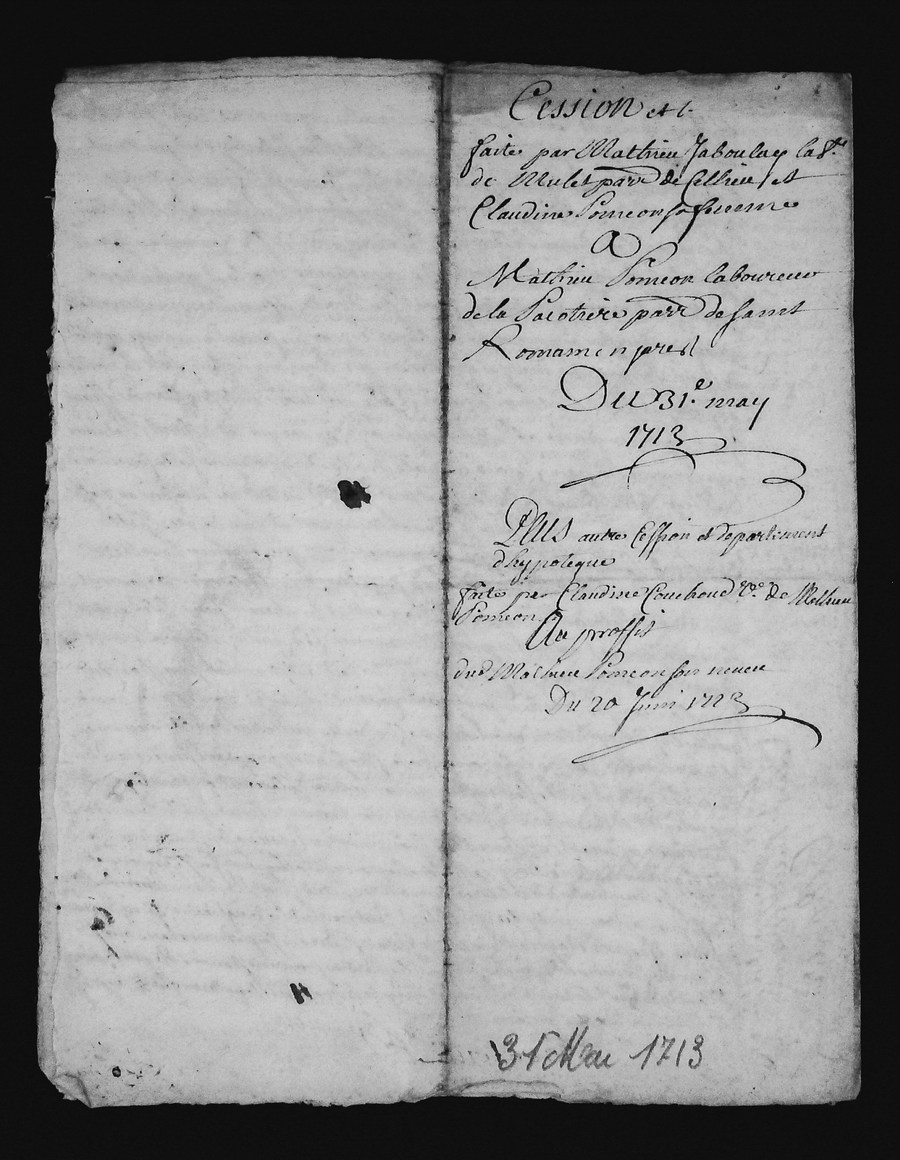 Cession et
faite par Mathieu Jaboulay
de Mulet parr de Cellieu et
Claudine Pomeon sa femme
A
Mathieu Pomeon laboureur
de la Pacotiere parr de Saint
Romain en
Du 31e may
1713
PLUS autre Cession et departiment
dhypoteque
faite par Claudine Couchoud Ve de Mathieu
Pomeon
Au proffit
dud Mathieu Pomeon son neveu
Du 20 Juin 1723
31 Mai 1713